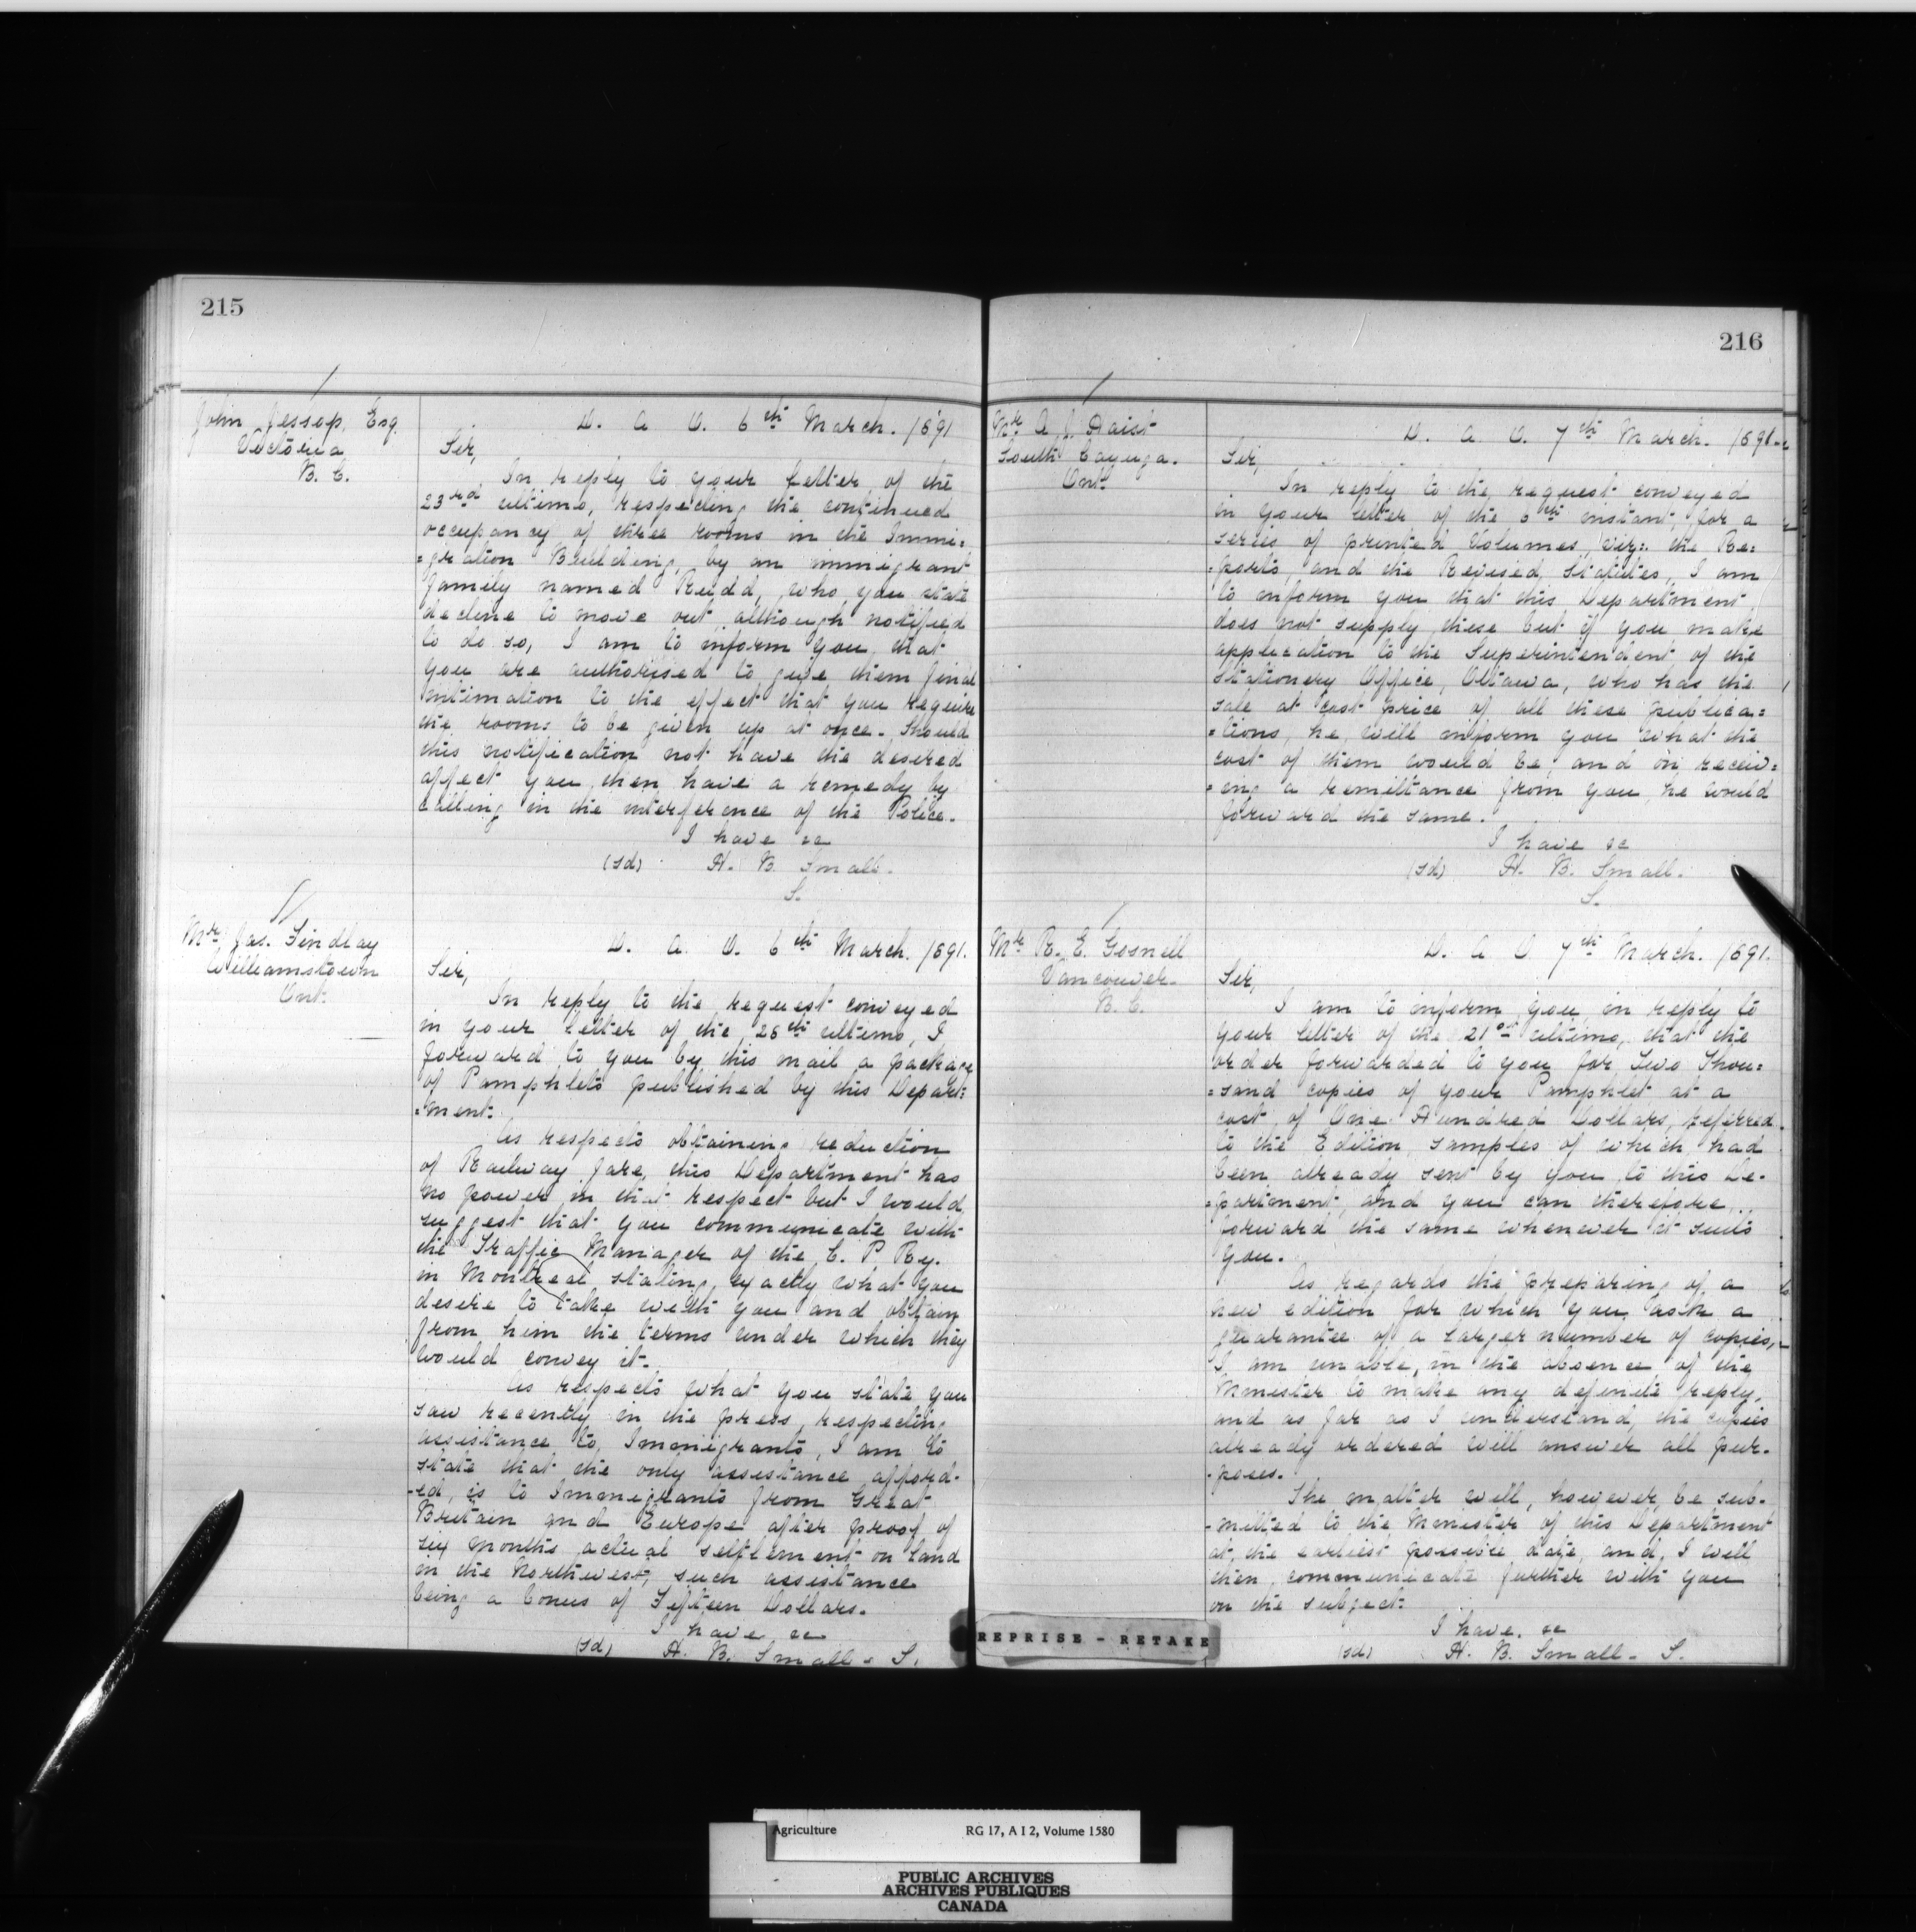 215
John Jessop, Esq.
Victoria
B. C.
D. A. O. 6th March. 1891
Sir,
In reply to your letter of the
23rd ultimo, respecting the continued
occupancy of three rooms in the Immi=
=gration Building, by an immigrant
family named Rudd, who you state
decline to move out although notified
to do so, I am to inform you that
you are authorised to give them final
intimation to the effect that you require
the rooms to be given up at once. Should
this notification not have the desired
affect you then have a remedy by
calling in the interference of the Police.
I have &c
(sd) H. B. Small.
S.
Mr Jas. Findlay
Williamstown
Ont.
D. A. O. 6th March. 1891.
Sir,
In reply to the request conveyed
in your letter of the 28th ultimo, I
forward to you by this mail a package
of Pamphlets published by this Depart:
=ment.
As respects obtaining reduction
of Railway fare, this Department has
no power in that respect but I would
suggest that you communicate with
the Traffic Manager of the C. P Ry.
in Montreal stating, exactly what you
desire to take with you and obtain
from him the terms under which they
would convey it.
As respects what you state you
saw recently in the press, respecting
assistance to, Immigrants, I am to
state that the only assistance afford-
-ed, is to Immigrants from Great
Britain and Europe after proof of
six months actual settlement on land
in the Northwest, such assistance
being a bonus of Fifteen Dollars.
I have &c
(sd) H. B. Small - S.
216
Mr A J. Haist
South Cayuga.
Ont.
D. A. O. 7th March. 1891
Sir,
In reply to the request conveyed
in your letter of the 6th instant, for a
series of printed Volumes, viz:. the Re=
=ports, and the Revised Statutes, I am
to inform you that this Department
does not supply these but if you make
application to the Superintendent of the
Stationery Office, Ottawa, who has the
sale at cost price of all these publica=
=tions, he will inform you what the
cost of them would be, and on receiv=
=ing a remittance from you, he would
forward the same.
I have &c
(sd) H. B. Small.
S.
Mr R. E. Gosnell
Vancouver
B. C.
D. A O 7th March. 1891.
Sir,
I am to inform you, in reply to
your letter of the 21st ultimo, that the
order forwarded to you for Two Thou=
=sand copies of your Pamphlet at a
cost of One Hundred Dollars, referred
to the Edition, samples of which had
been already sent by you to this De-
=partment, and you can therefore
forward the same whenever it suits
you.
As regards the preparing of a
new edition for which you ask a
guarantee of a larger number of copies,
I am unable, in the absence of the
Minister to make any definite reply,
and as far as I understand, the copies
already ordered will answer all pur-
-poses.
The matter will, however, be sub-
-mitted to the Minister of this Department
at the earliest possible date, and, I will
then communicate further with you
on the subject.
I have. &c
(sd) H. B. Small - S.
REPRISE - RETAKE
Agriculture RG 17, A I 2, Volume 1580
PUBLIC ARCHIVES
ARCHIVES PUBLIQUES
CANADA